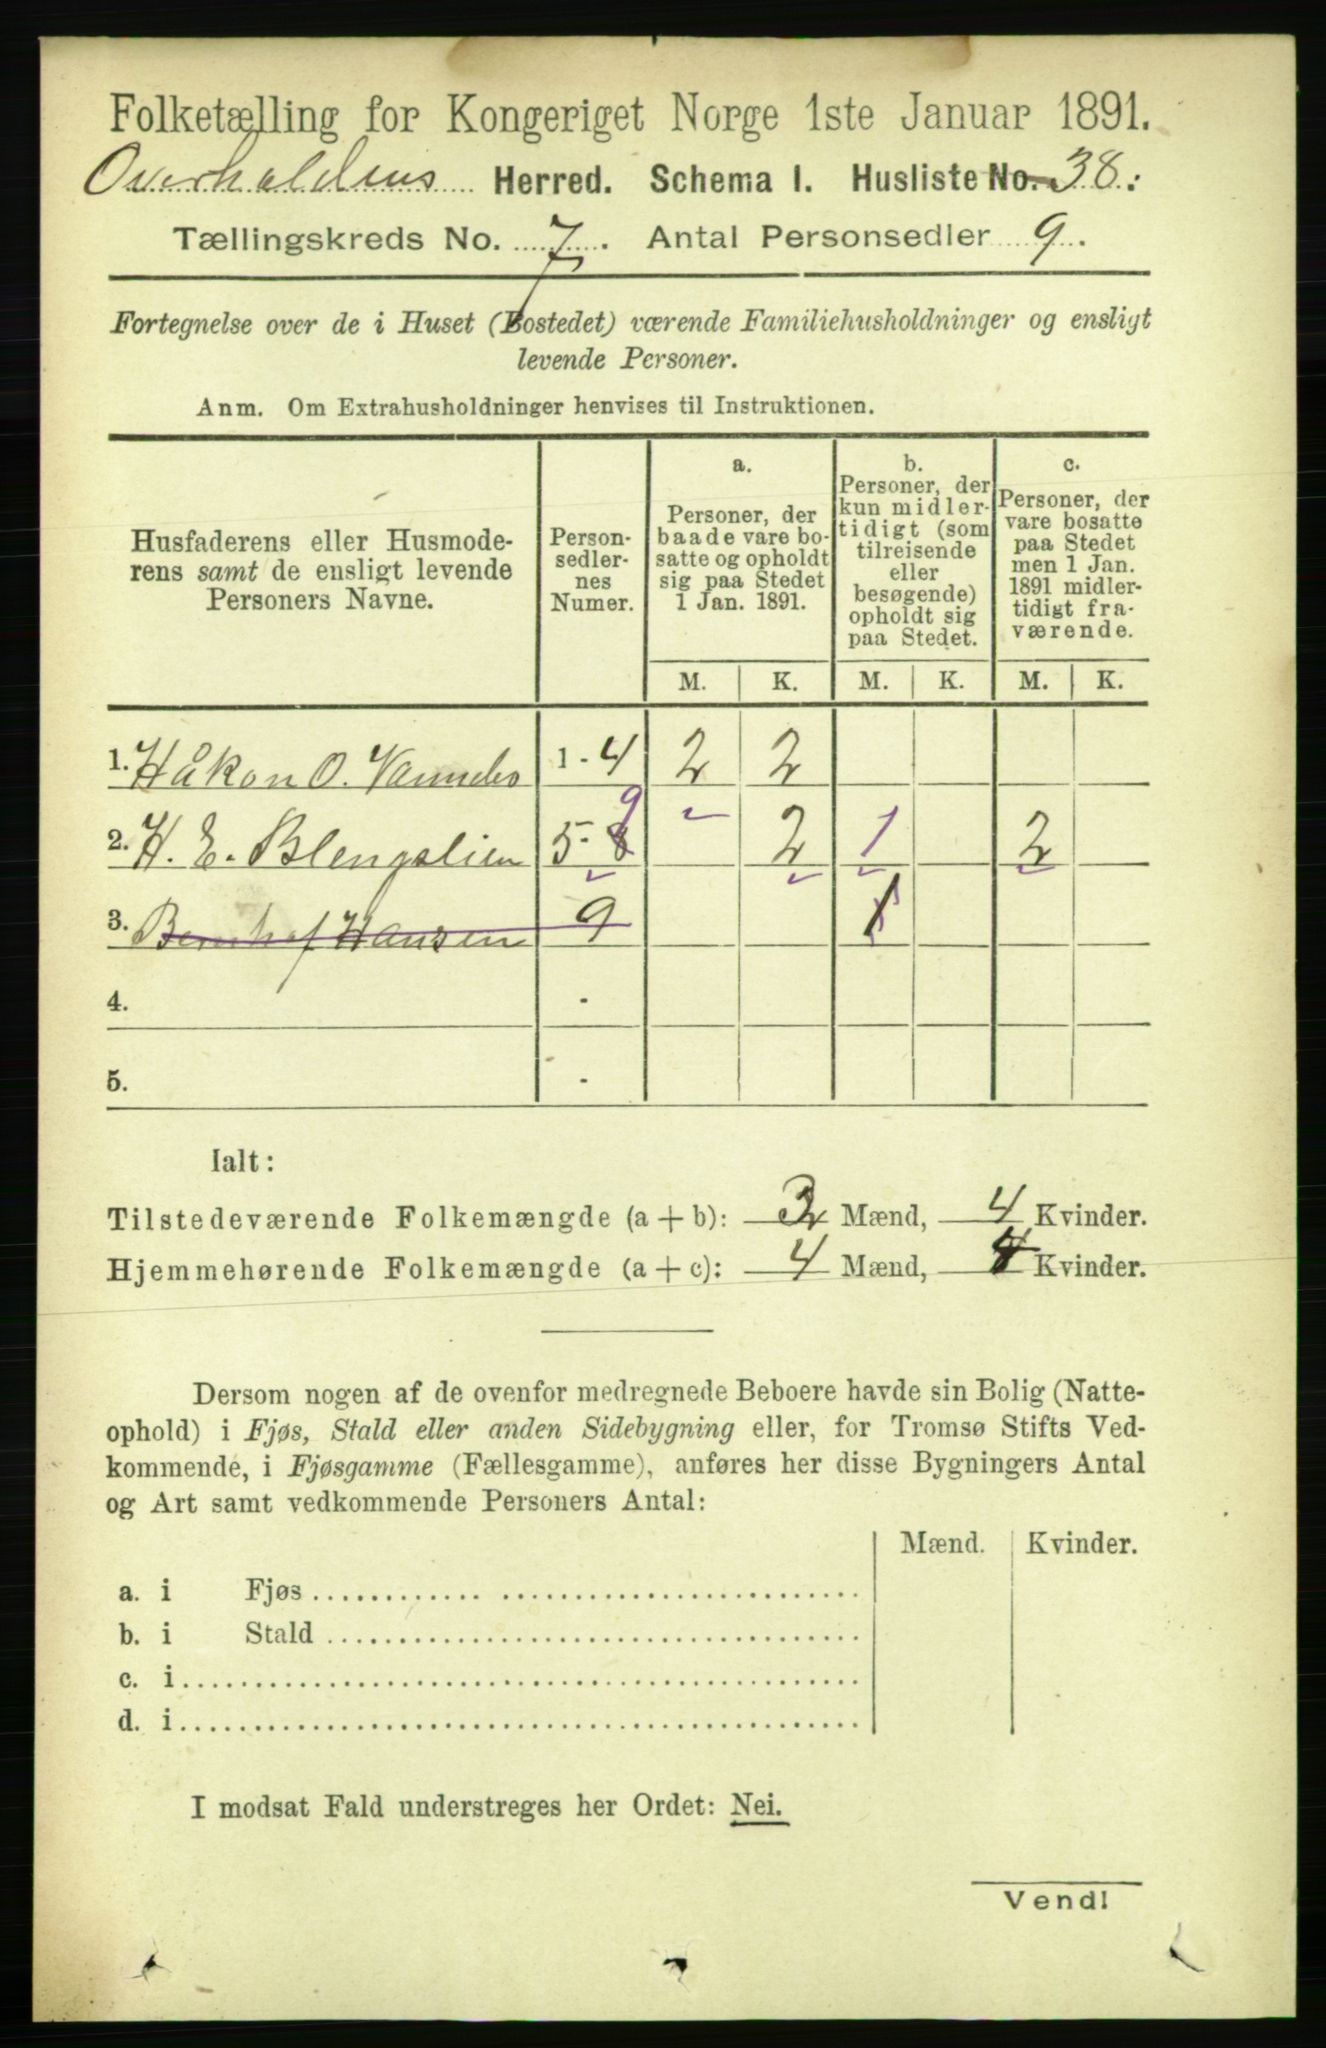 Folketælling for Kongeriget Norge 1ste Januar 1891.
Overhaldens Herred. Schema I. Husliste No. 38.
Tællingskreds No. 7. Antal Personsedler 9.
Fortegnelse over de i Huset (Bostedet) værende Familiehusholdninger og ensligt
levende Personer.
Anm. Om Extrahusholdninger henvises til Instruktionen.
Husfaderens eller Husmode-
rens samt de ensligt levende
Personers Navne.
Person-
sedler-
nes
Numer.
a.
Personer, der
baade vare bo-
satte og opholdt
sig paa Stedet
1 Jan. 1891.
b.
Personer, der
kun midler-
tidigt (som
tilreisende
eller
besøgende)
opholdt sig
paa Stedet.
c.
Personer, der
vare bosatte
paa Stedet
men 1 Jan.
1891 midler-
tidigt fra-
værende.
M. K. M. K. M. K.
1. Håkon O. 1 - 4 2 2
2. H. E. Blengslien 5 - 9 2 1 2
3. Hansen 9 1
4. -
5. -
Ialt:
Tilstedeværende Folkemængde (a + b): 3 Mænd, 4 Kvinder.
Hjemmehørende Folkemængde (a + c): 4 Mænd, 4 Kvinder.
Dersom nogen af de ovenfor medregnede Beboere havde sin Bolig (Natte-
ophold) i Fjøs, Stald eller anden Sidebygning eller, for Tromsø Stifts Ved-
kommende, i Fjøsgamme (Fællesgamme), anføres her disse Bygningers Antal
og Art samt vedkommende Personers Antal:
Mænd. Kvinder.
a. i Fjøs
b. i Stald
c. i
d. i
I modsat Fald understreges her Ordet: Nei.
Vend!